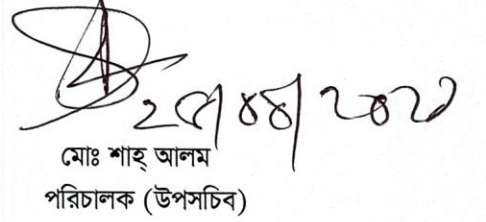 মোঃ শাহ্ আলম
পরিচালক (উপসচিব)